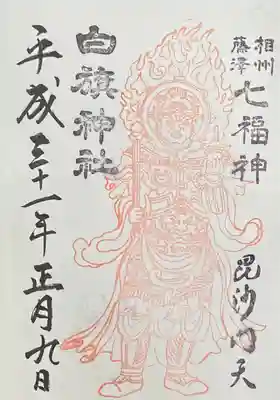 相州
藤澤
七福神
毘沙門天
白旗神社
平成三十一年正月九日